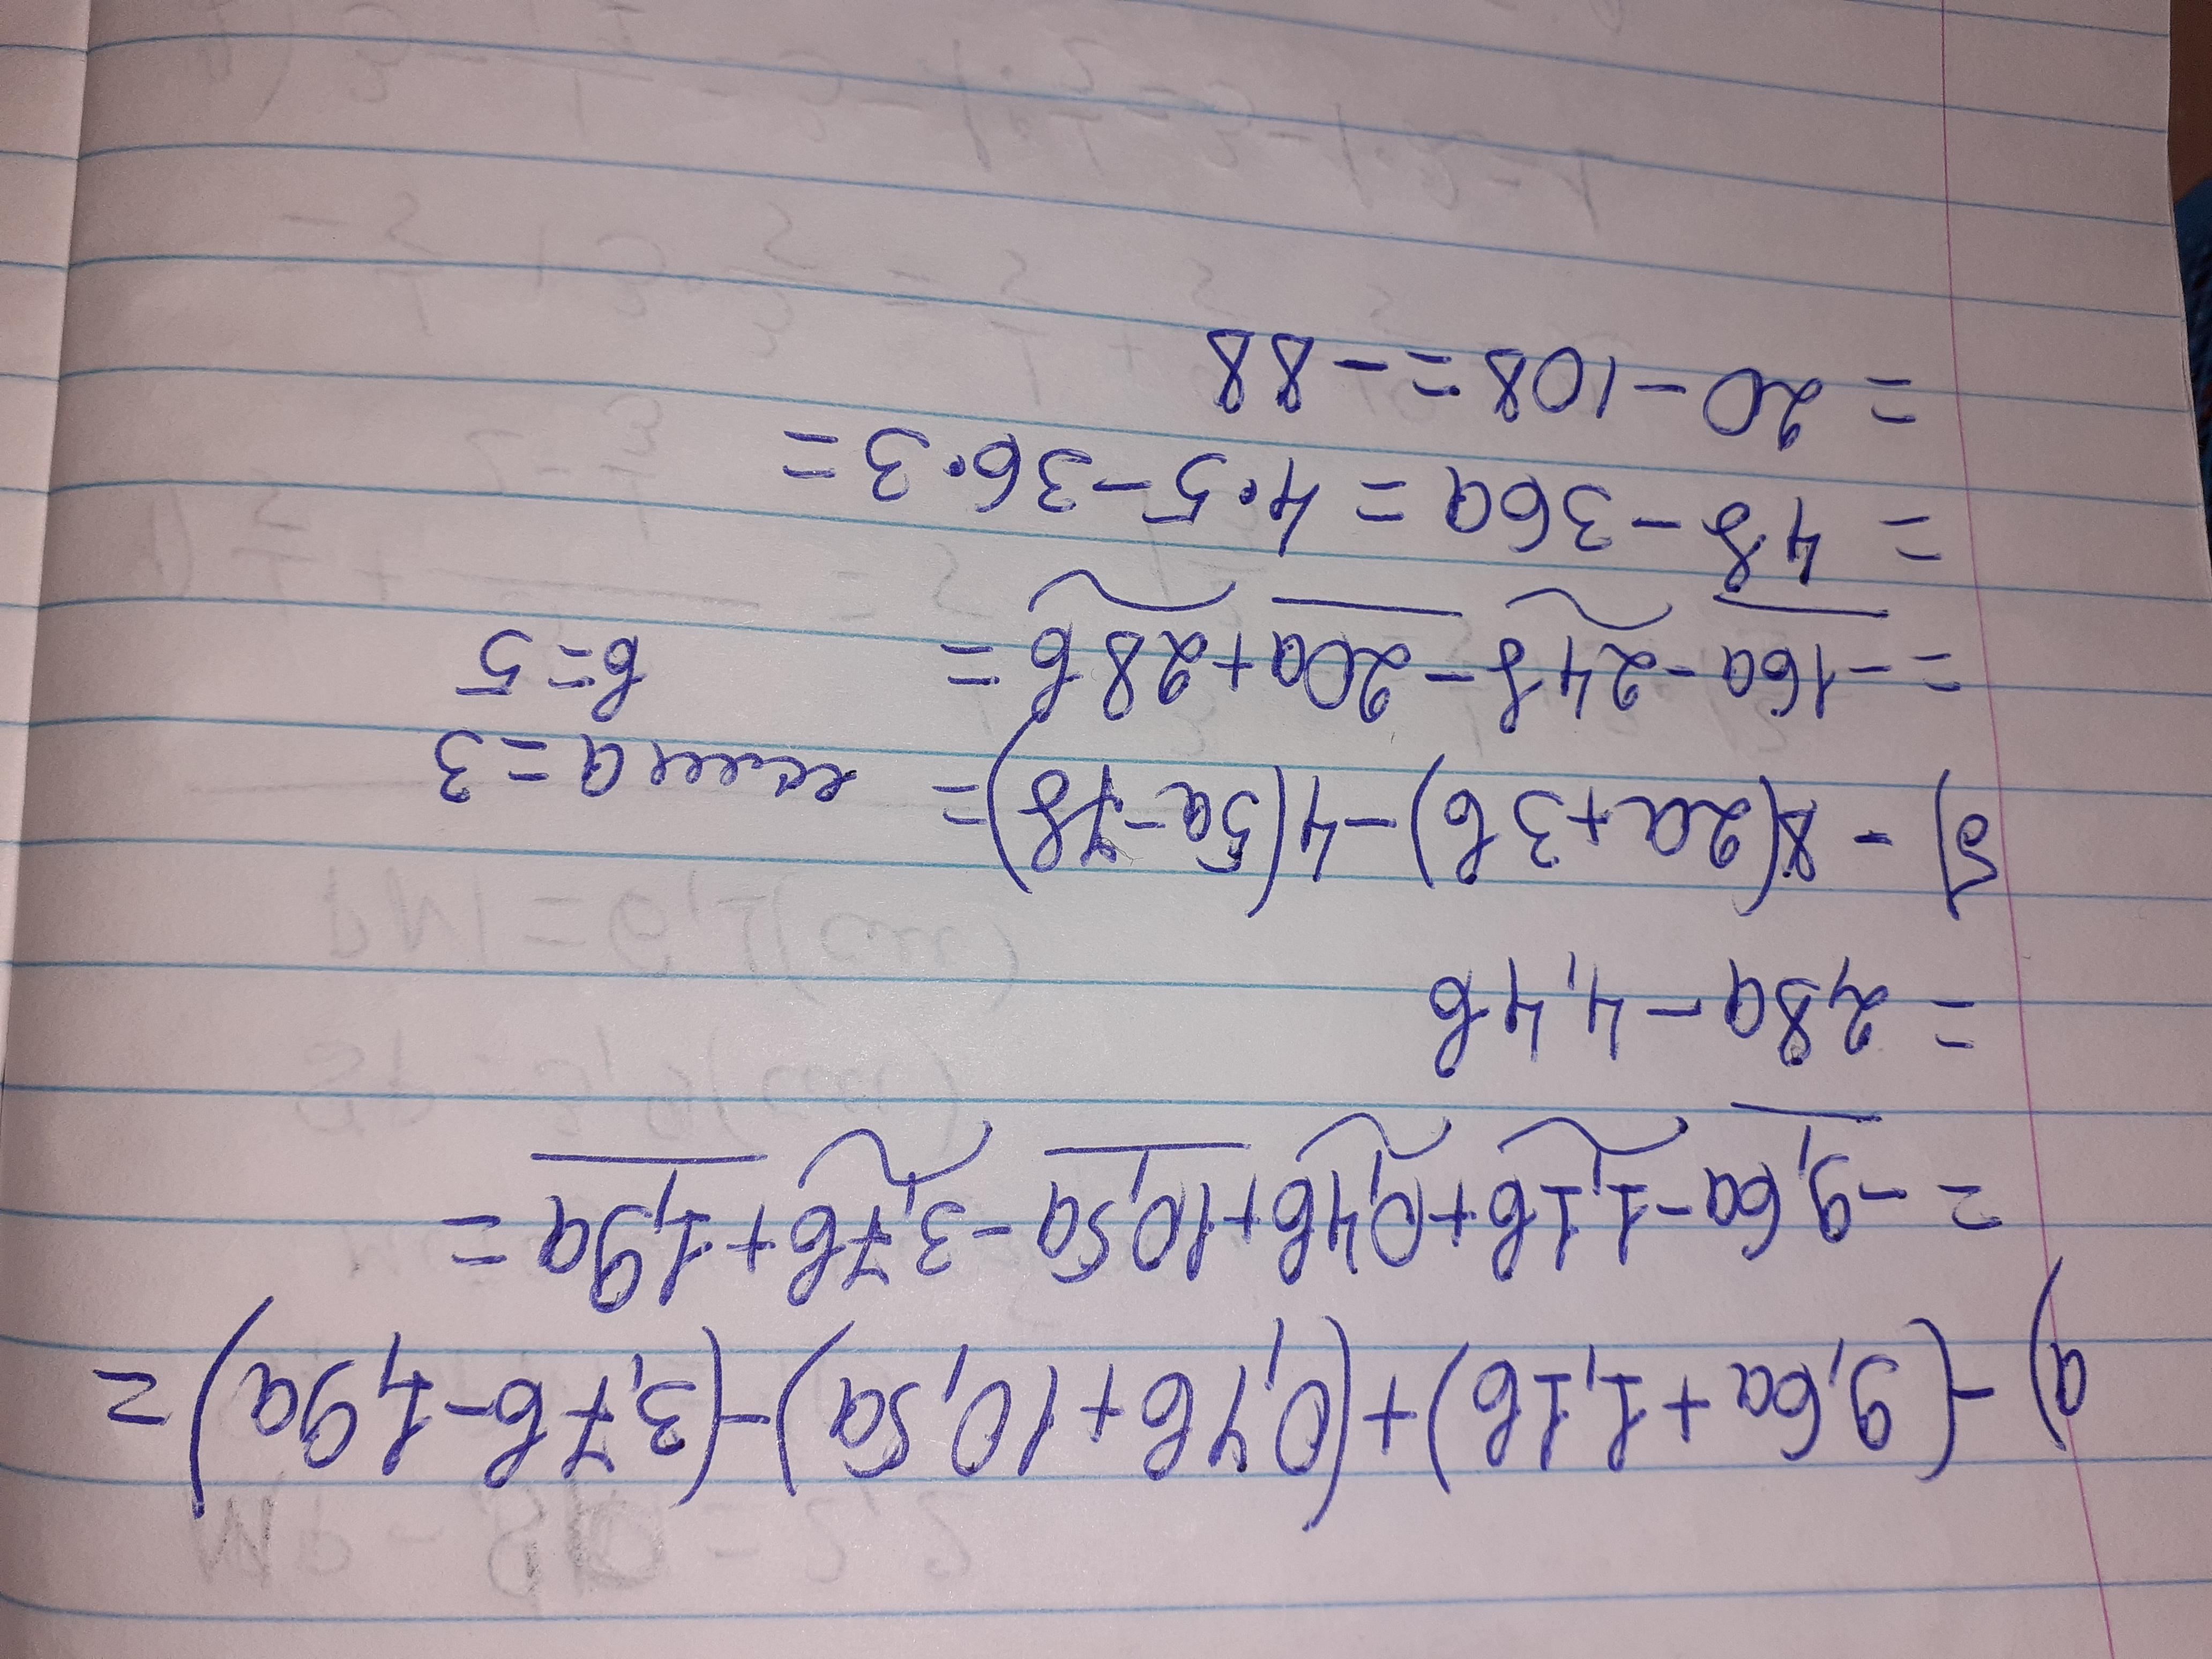 а) -(9,6a+1,1b)+(0,4b+10,5a)-(3,7b-1,9a)=
=-9,6a-1,1b+0,4b+10,5a-3,7b+1,9a=
=2,8a-4,4b
б) -8(2a+3b)-4(5a-7b)= если a=3
=-16a-24b-20a+28b= b=5
=4b-36a=4·5-36·3=
=20-108=-88